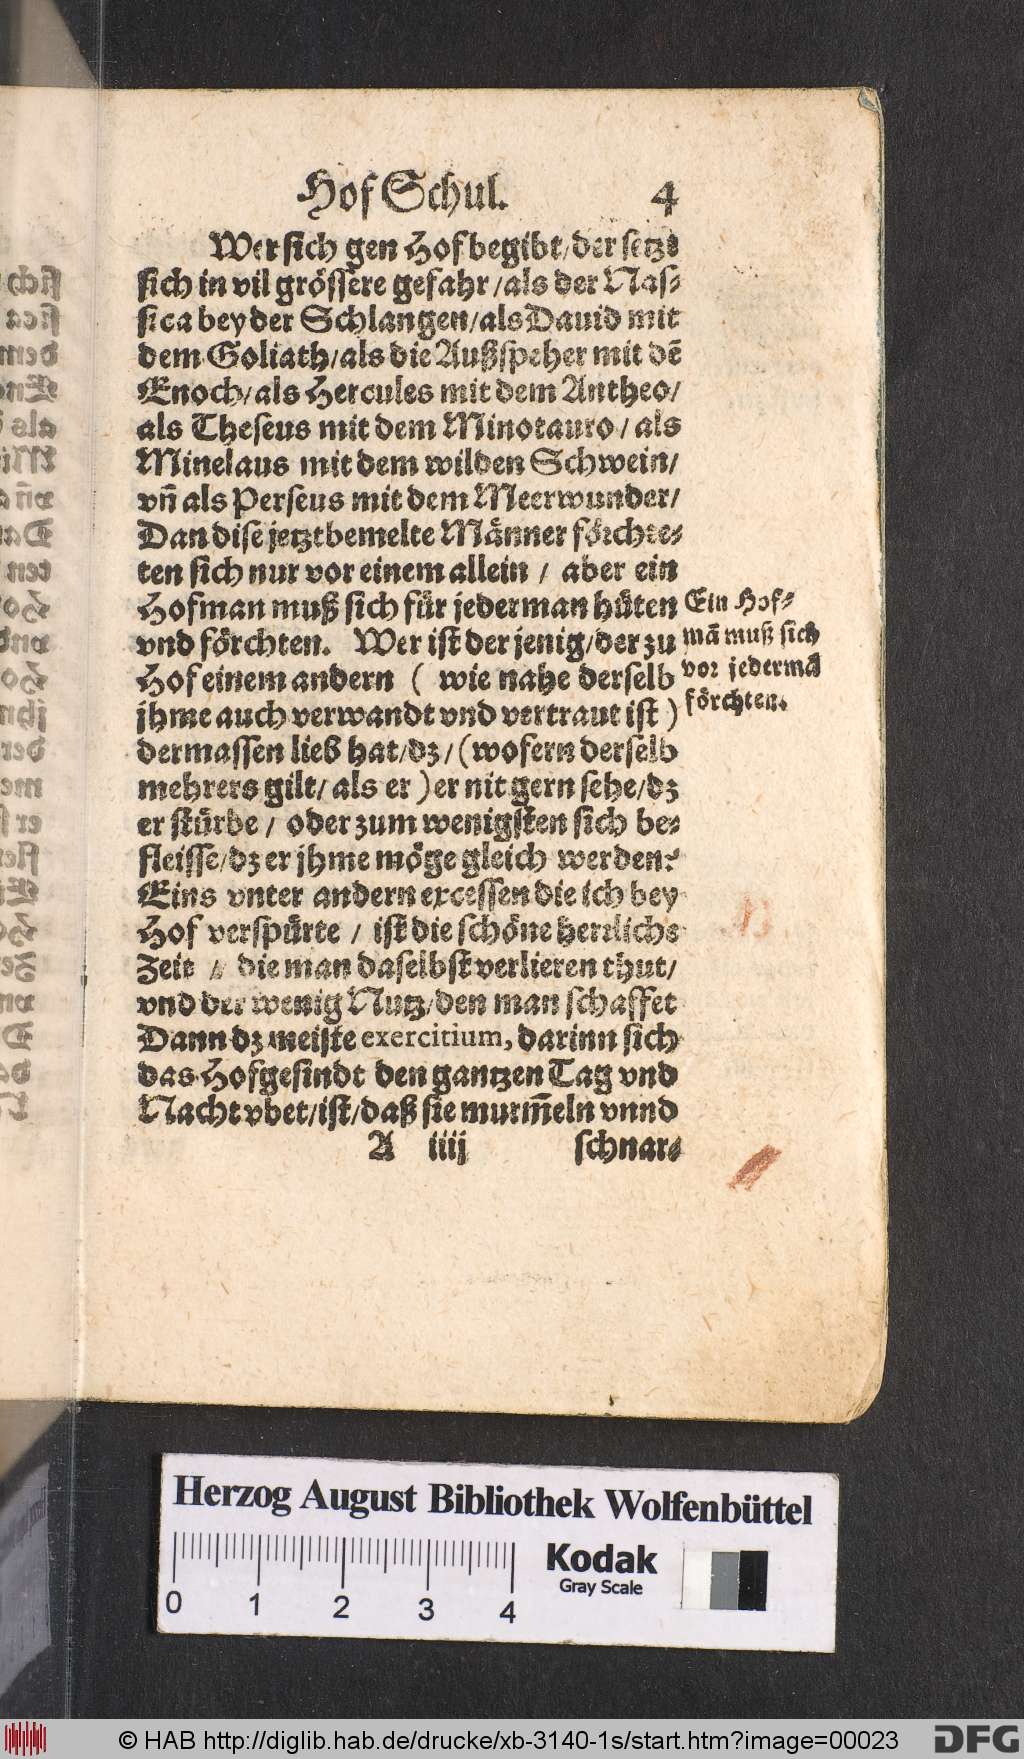 Hof Schul. 4
Wer sich gen Hof begibt/ der setzt
sich in vil grössere gefahr/ als der Nas-
sica bey der Schlangen/ als Dauid mit
dem Goliath/ als die Außspeher mit dẽ
Enoch/ als Hercules mit dem Antheo/
als Theseus mit dem Minotauro/ als
Minelaus mit dem wilden Schwein/
vñ als Perseus mit dem Meerwunder/
Dan dise jetztbemelte Männer förchte-
ten sich nur vor einem allein / aber ein
Hofman muß sich für jederman hüten
vnd förchten. Wer ist der jenig/ der zu
Hof einem andern ( wie nahe derselb
jhme auch verwandt vnd vertraut ist )
dermassen lieb hat/ dz/ (wofern derselb
mehrers gilt/ als er ) er nit gern sehe/ dz
er stürbe / oder zum wenigsten sich be-
fleisse/ dz er jhme möge gleich werden?
Eins vnter andern excessen die ich bey
Hof verspürte / ist die schöne herrliche
Zeit / die man daselbst verlieren thut/
vnd der wenig Nutz/ den man schaffet
Dann dz meiste exercitium, darinn sich
das Hofgesindt den gantzen Tag vnd
Nacht vbet/ ist/ daß sie murm̃eln vnnd
A iiij schnar-
Ein Hof-
mã muß sich
vor jedermã
förchten.
Herzog August Bibliothek Wolfenbüttel
0 1 2 3 4
Kodak
Gray Scale
© HAB http://diglib.hab.de/drucke/xb-3140-1s/start.htm?image=00023
DFG